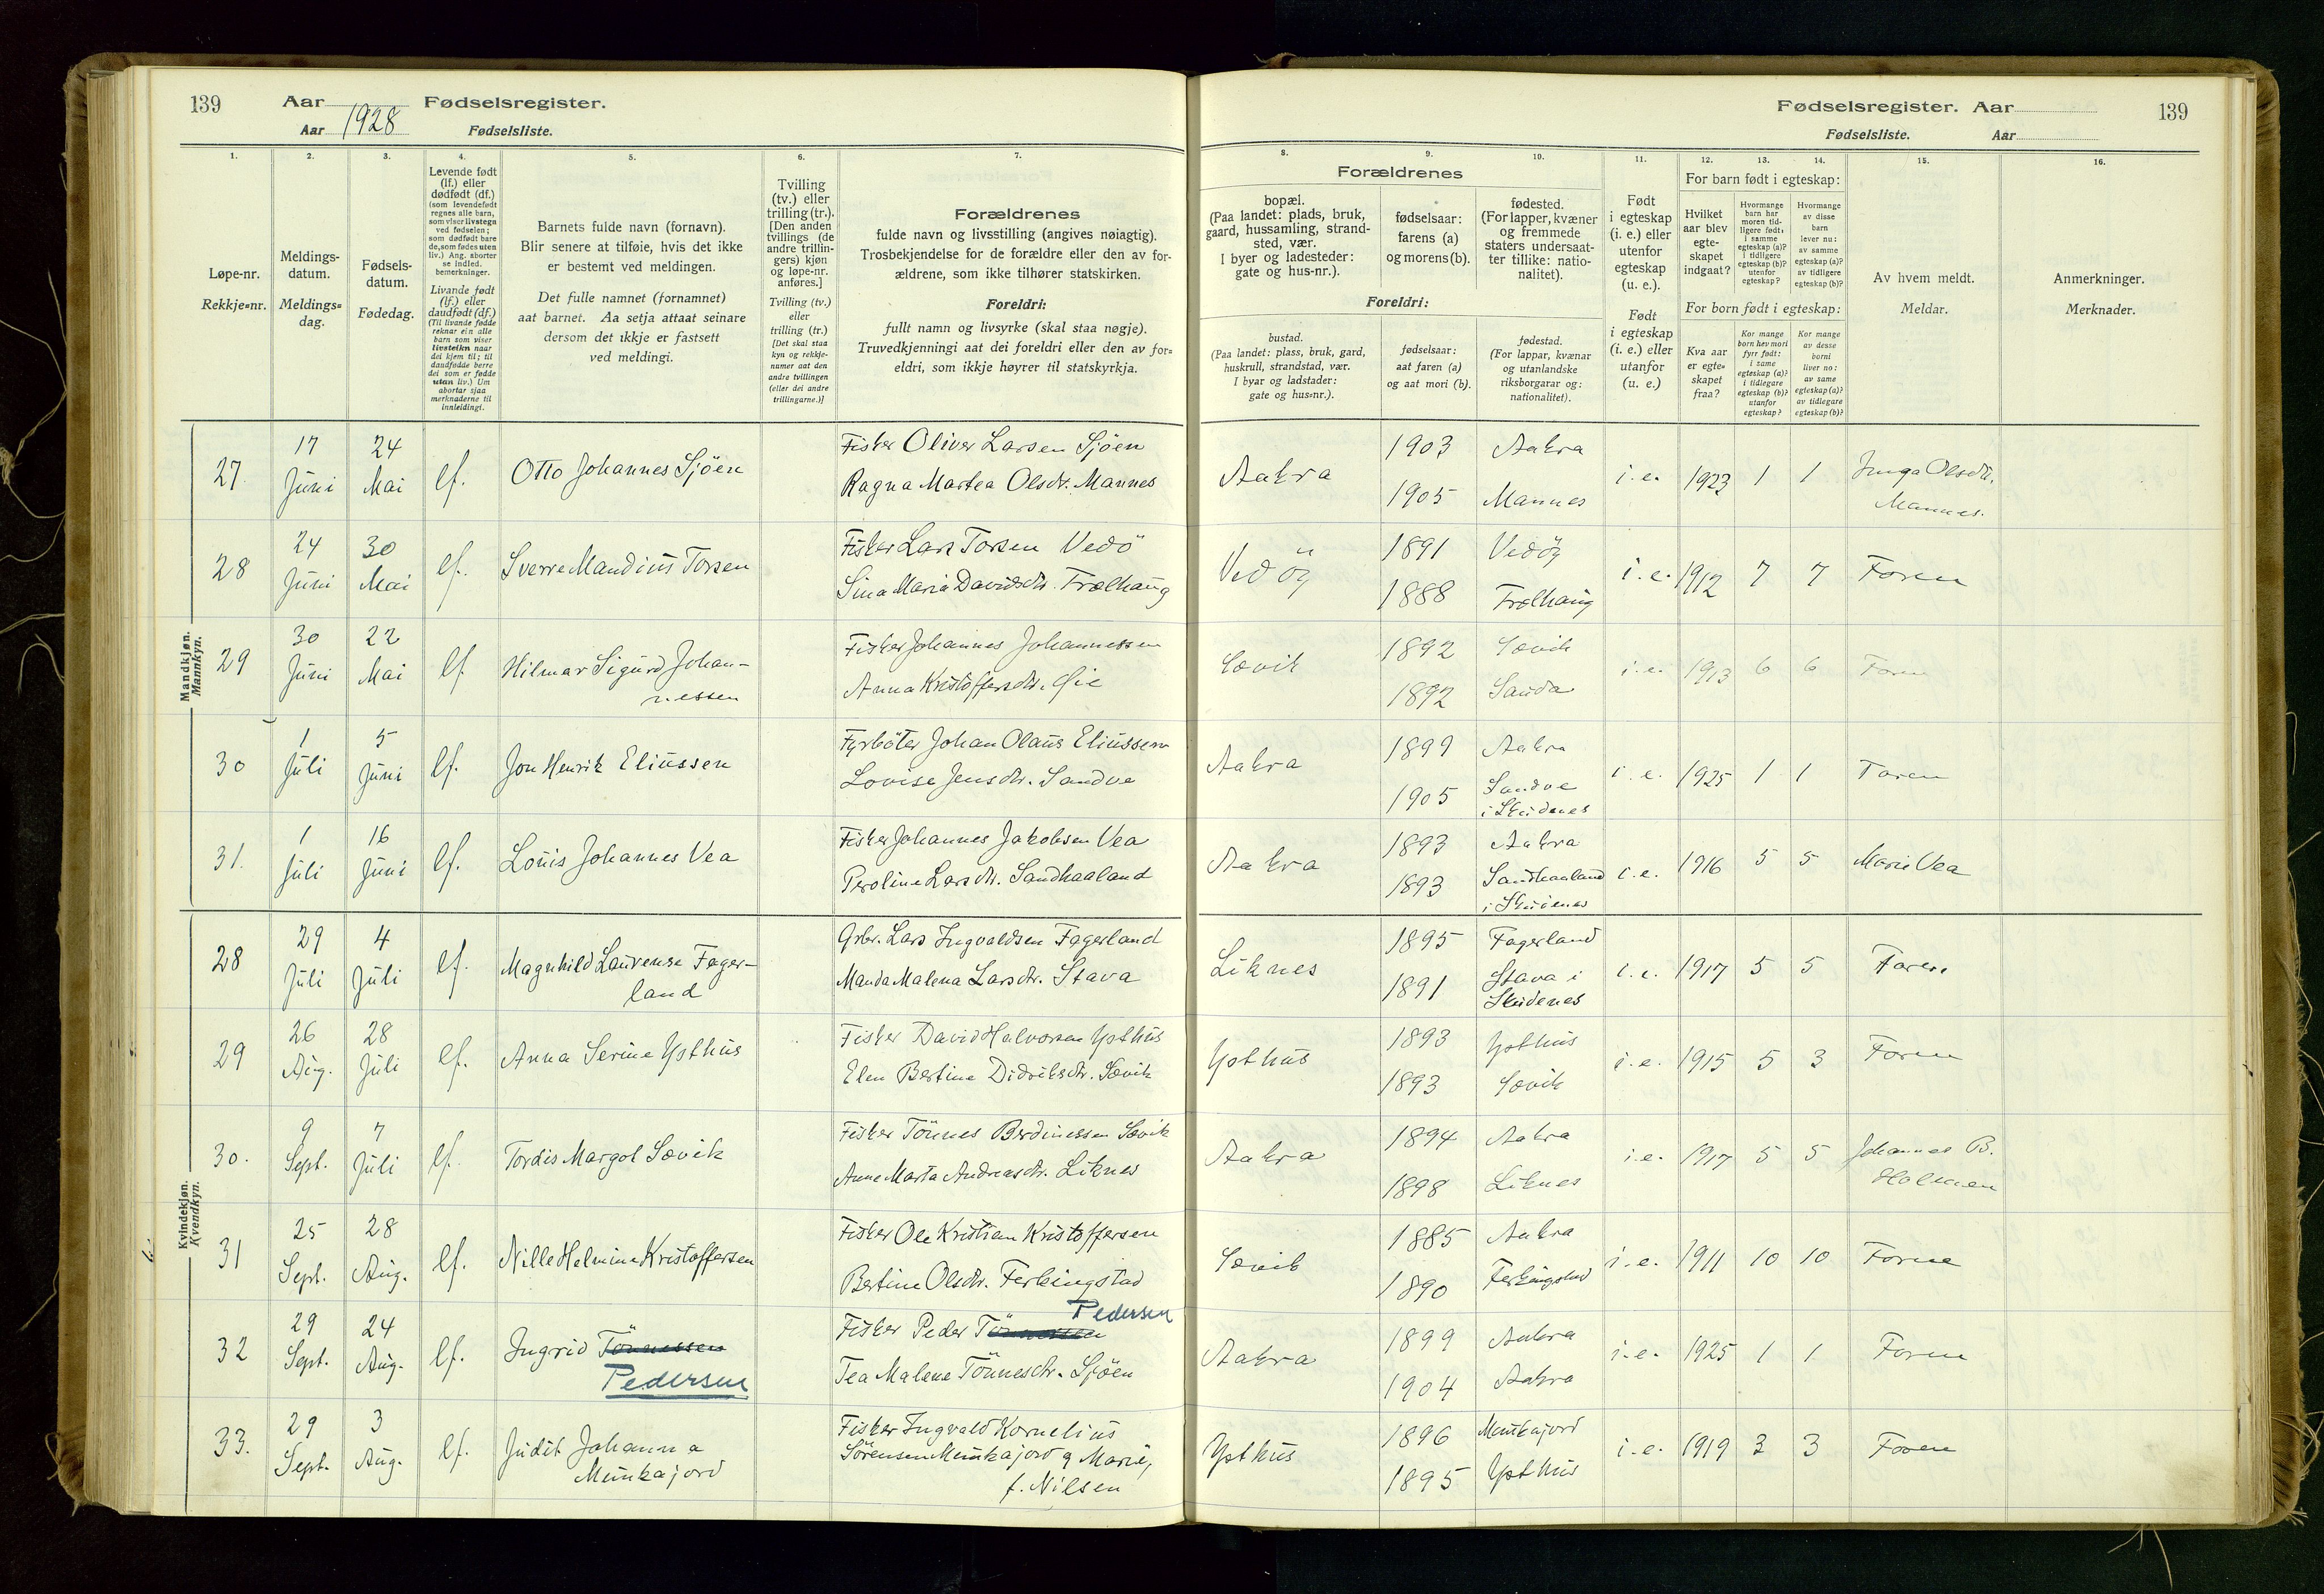 139 Aar 1928 Fødselsregister.
Aar Fødselsliste.
Fødselsregister. Aar 139
Fødselsliste. Aar
1. 2. 3. 4. 5. 6. 7. 8. 9. 10. 11. 12. 13. 14. 15. 16.
Løpe-nr.
Rekkje=nr.
Meldings-
datum.
Meldings=
dag.
Fødsels-
datum.
Fødedag.
Levende født
(lf.) eller
dødfødt (df.)
(som levendefødt
regnes alle barn,
som viser livstegn
ved fødselen;
som dødfødt bare
de, som fødes uten
liv.) Ang. aborter
se indled.
bemerkninger.
Livande født
(lf.) eller
daudfødt (df.)
(Til livande fødde
reknar ein alle
barn som viser
livsteikn naar
dei kjem til; til
daudfødde berre
dei som er fødde
utan liv.) Um
abortar sjaa
merknaderne til
innleidingi.
Barnets fulde navn (fornavn).
Blir senere at tilføie, hvis det ikke
er bestemt ved meldingen.
Det fulle namnet (fornamnet)
aat barnet. Aa setja attaat seinare
dersom det ikkje er fastsett
ved meldingi.
Tvilling
(tv.) eller
trilling (tr.).
[Den anden
tvillings (de
andre trillin-
gers) kjøn
og løpe-nr.
anføres.]
Tvilling (tv.)
eller
trilling (tr.)
[Det skal staa
kyn og rekkje-
numer aat den
andre tvillingen
(eller dei andre
trillingarne.)]
Forældrenes
fulde navn og livsstilling (angives nøiagtig).
Trosbekjendelse for de forældre eller den av for-
ældrene, som ikke tilhører statskirken.
Foreldri:
fullt namn og livsyrke (skal staa nøgje).
Truvedkjenningi aat dei foreldri eller den av for=
eldri, som ikkje høyrer til statskyrkja.
Forældrenes
bopæl.
(Paa landet: plads, bruk,
gaard, hussamling, strand-
sted, vær.
I byer og ladesteder:
gate og hus-nr.).
fødselsaar:
farens (a)
og morens (b).
fødested.
(For lapper, kvæner
og fremmede
staters undersaat-
ter tillike: natio-
nalitet).
Foreldri:
bustad.
(Paa landet: plass, bruk, gard,
huskrull, strandstad, vær.
I byar og ladstader:
gate og hus=nr.).
fødselsaar:
aat faren (a)
og aat mori (b).
fødestad.
(For lappar, kvænar
og utanlandske
riksborgarar og:
nationalitet).
Født
i egteskap
(i. e.) eller
utenfor
egteskap
(u. e.).
Født
i egteskap
(i. e.) eller
utanfor
(u. e.)
For barn født i egteskap:
Hvilket
aar blev
egte-
skapet
indgaat?
Hvormange
barn har
moren tid-
ligere født:
i samme
egteskap (a)?
i tidligere
egteskap (b)?
utenfor
egteskap?
Hvormange
av disse
barn
lever nu:
av samme
egteskap (a)?
av tidligere
egteskap (b)?
For born født i egteskap:
Kva aar
er egte=
skapet
fraa?
Kor mange
born hev mori
fyrr født:
i same
egteskap (a)?
i tidlegare
egteskap (b)?
utanfor
egteskap?
Kor mange
av desse
borni
liver no:
av same
egteskap (a)?
av tidlegare
egteskap (b)?
Av hvem meldt.
Meldar.
Anmerkninger.
Merknader.
Mandkjøn.
Mannkyn.
27 17 Juni 24 Mai lf. Otto Johannes Sjöen
Fisker Oliver Larsen Sjöen
Ragna Martea Olsdr. Mannes
Aakra 1903 Aakra
1905 Mannes
i. e. 1923 1 1 Inga Olsdr.
Mannes.
28 24 Juni 30 Mai lf. Sverre Mandius Torsen
Fisker Lars Torsen Vedö
Sina Maria Davidsdtr. Trælhaug
Vedöy 1891 Vedöy
1888 Trælhaug
i. e. 1912 7 7 Faren
29 30 Juni 22 Mai lf. Hilmar Sigurd Johan-
nessen
Fisker Johannes Johannessen
Anna Kristoffersdtr. Öie
Sævik 1892 Sævik
1892 Sauda
i. e. 1913 6 6 Faren
30 1 Juli 5 Juni lf. Jon Henrik Eliussen
Fyrböter Johan Olaus Eliussen
Lovise Jensdtr. Sandve
Aakra 1899 Aakra
1905 Sandve
i Skudenes
i. e. 1925 1 1 Faren
31. 1 Juli 16 Juni lf. Louis Johannes Vea
Fisker Johannes Jakobsen Vea
Peroline Larsdtr. Sandhaaland
Aakra 1893 Aakra
1893 Sandhaaland
i Skudenes
i. e. 1916 5 5 Marie Vea
Kvindekjøn.
Kvendkyn.
28 29 Juli 4 Juli lf. Magnhild Laurense Fager-
land
Grbr. Lars Ingvaldsen Fagerland
Manda Malena Larsdtr. Stava
Liknes 1895 Fagerland
1891 Stava i
Skudenes
i. e. 1917 5 5 Faren
29 26 Aug. 28 Juli lf. Anna Serine Ysthus
Fisker David Halvorsen Ysthus
Elen Bertine Didriksdtr. Sævik
Ysthus 1893 Ysthus
1893 Sævik
i. e. 1915 5 3 Faren
30. 9 Sept. 7 Juli lf. Tordis Margot Sævik
Fisker Tönnes Berdinessen Sævik
Anne Marta Andreasdtr. Liknes
Aakra 1894 Aakra
1898 Liknes
i. e. 1917 5 5 Johannes B.
Holmen
31 25 Sept. 28 Aug. lf. Nille Helmine Kristoffersen
Fisker Ole Kristian Kristoffersen
Bertine Olsdtr. Ferkingstad
Sævik 1885 Aakra
1890 Ferkingstad
i. e. 1911 10 10 Faren
32 29 Sept. 24 Aug. lf. Ingrid Tönnessen
Pedersen
Fisker Peder Tönnessen Pedersen
Tea Malene Tönnesdtr. Sjöen
Aakra 1899 Aakra
1904 Aakra
i. e. 1925 1 1 Faren
33. 29 Sept. 3 Aug. lf. Judit Johanna
Munkajord
Fisker Ingvald Kornelius
Sörensen Munkajord g Marie,
f. Nilsen
Ysthus 1896 Munkajord
1895 Ysthus
i. e. 1919 3 3 Faren